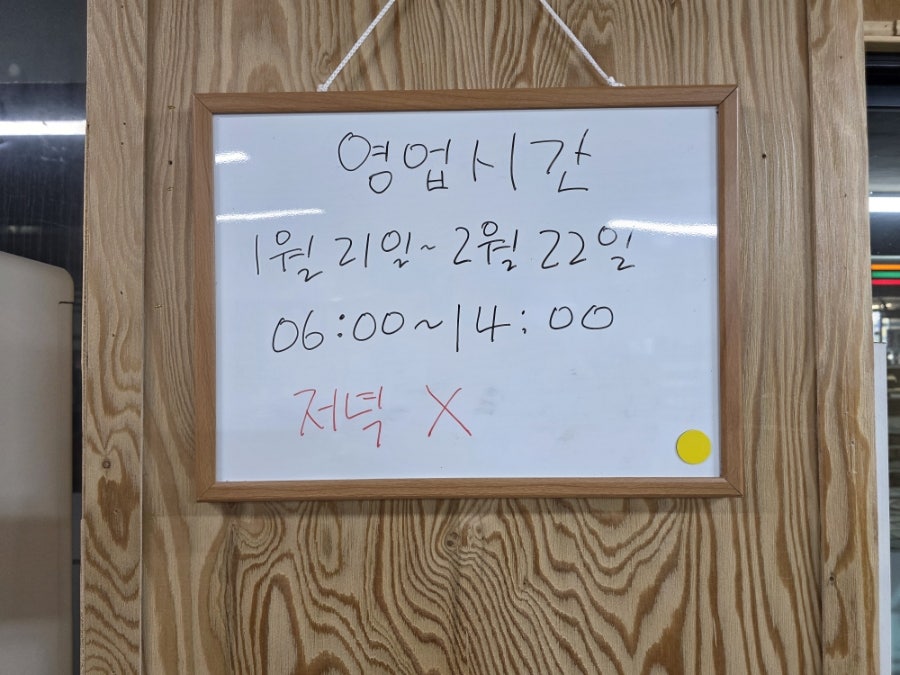 영업시간
1월 21일~2월 22일
06:00~14:00
저녁 X